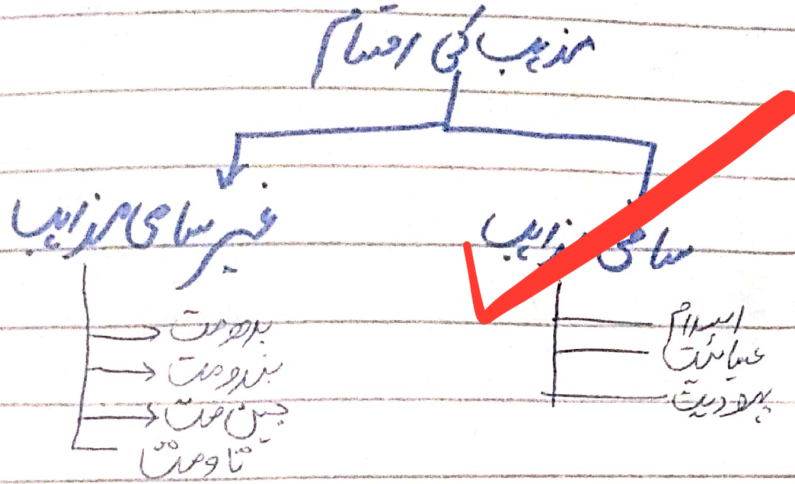 مذہب کی اقسام
سامی مذاہب
اسلام
عیسائیت
یہودیت
غیر سامی مذاہب
بدھ مت
ہندومت
جین مت
تاومت